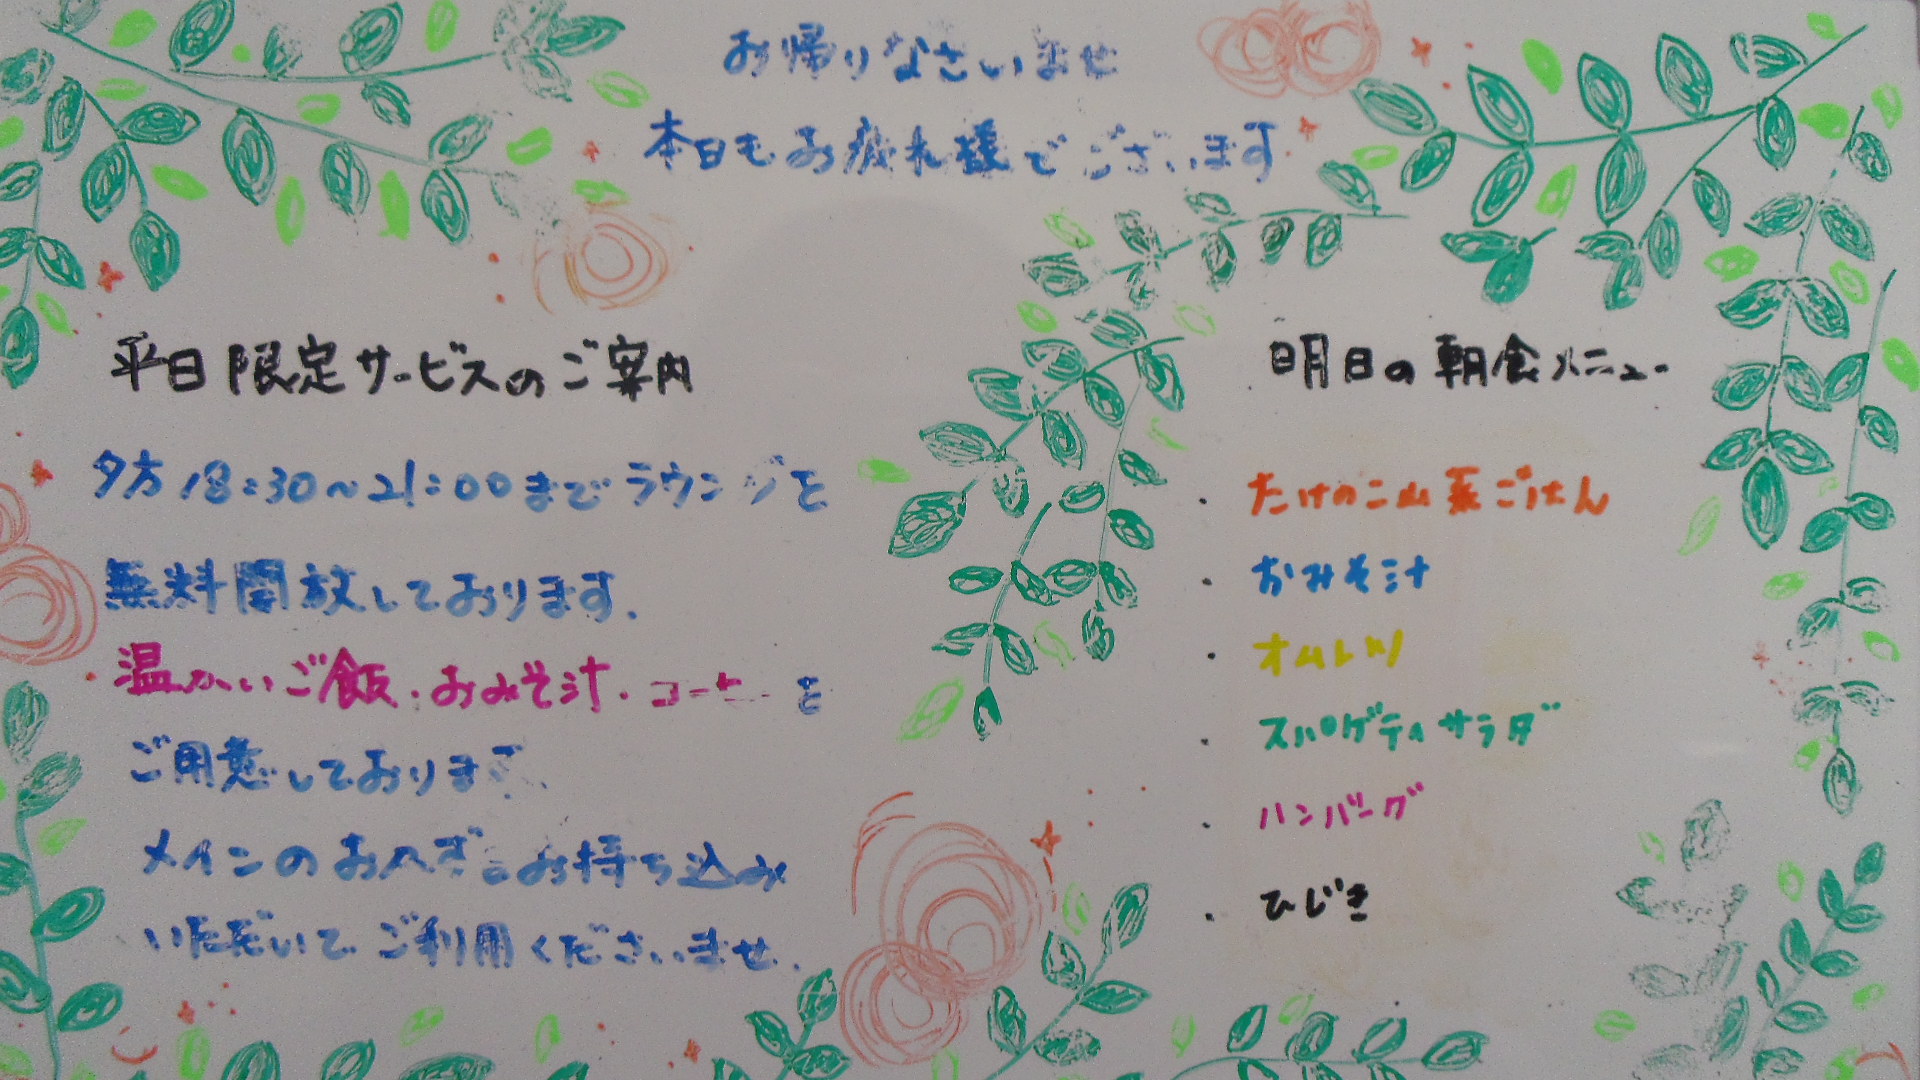 お帰りなさいませ
本日もお疲れ様でございます
平日限定サービスのご案内
夕方18:30～21:00までラウンジを
無料開放しております.
温かいご飯・おみそ汁・コーヒーを
ご用意しております.
メインのおかずをお持ち込み
いただいてご利用くださいませ.
明日の朝食メニュー
・たけのこ山菜ごはん
・おみそ汁
・オムレツ
・スパゲティサラダ
・ハンバーグ
・ひじき